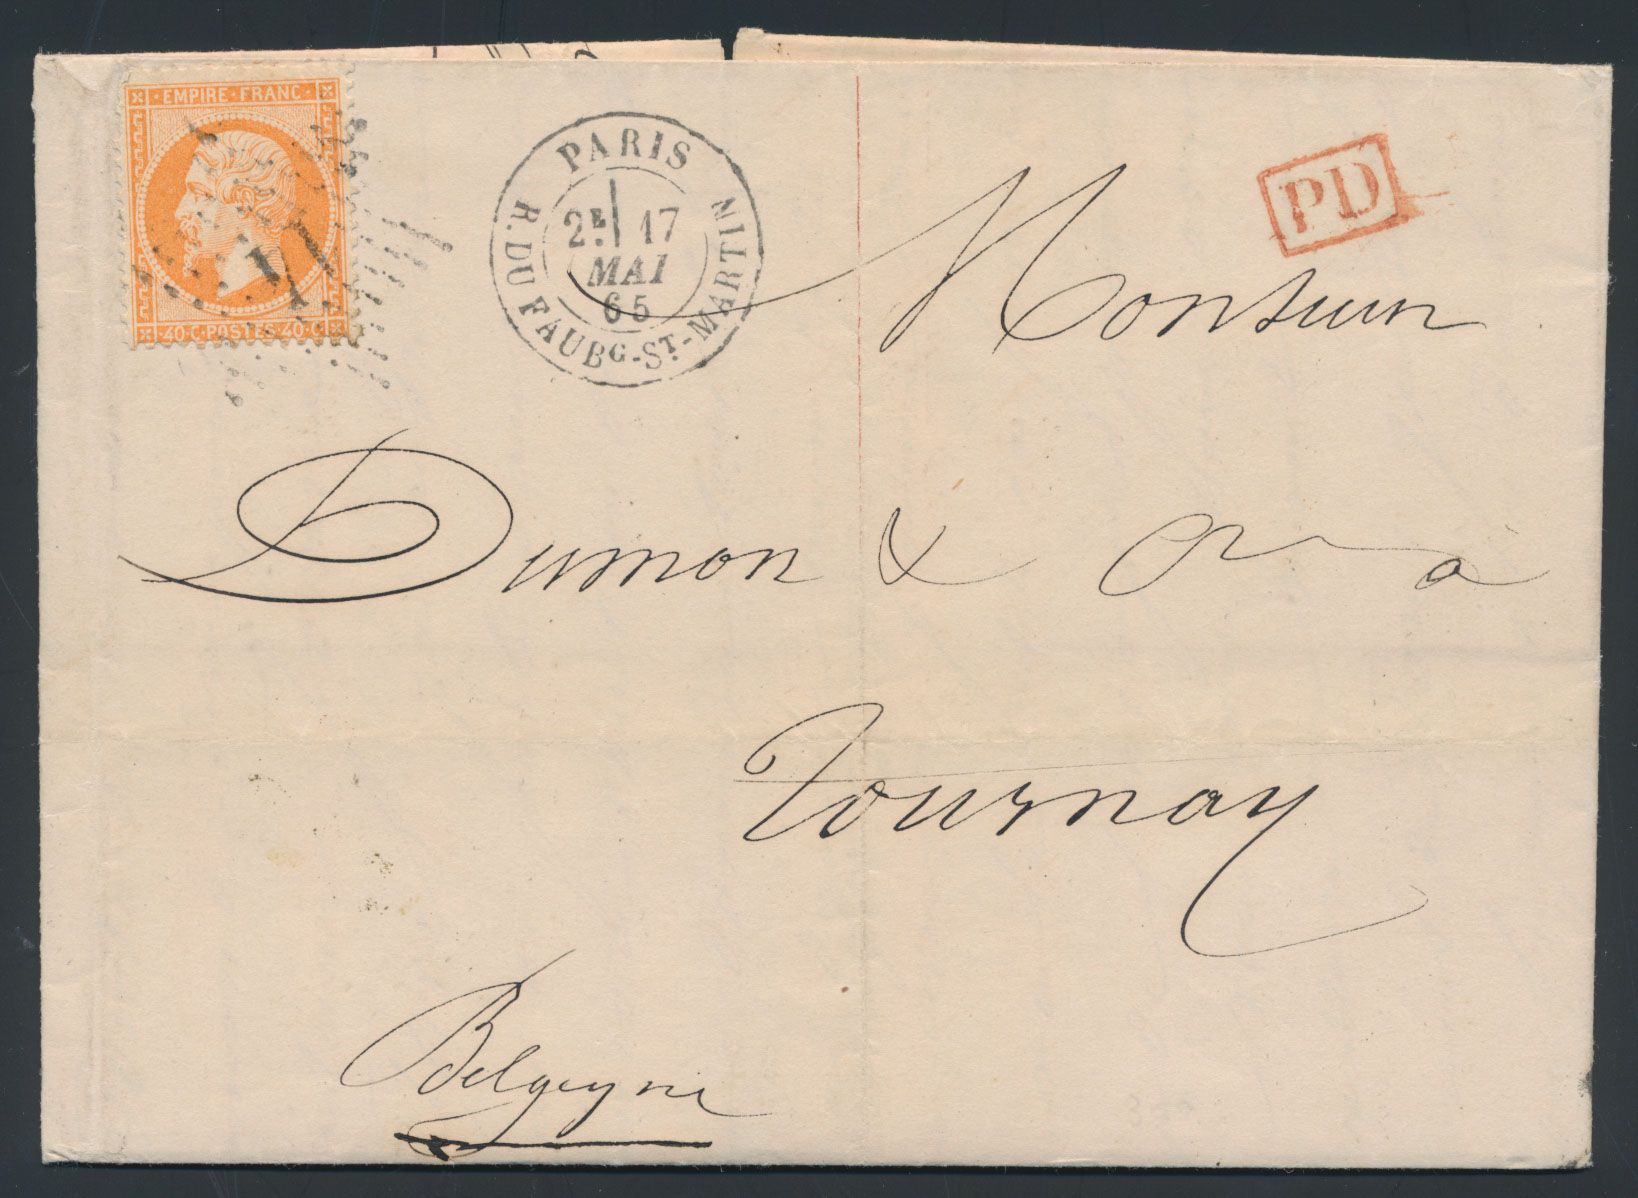 EMPIRE·FRANC·
40·C·POSTES·40·C
PARIS
2E 17
MAI
65
R. DU FAUBG-ST-MARTIN
PD
Monsieur
Dumon & a
Tournay
Belgique